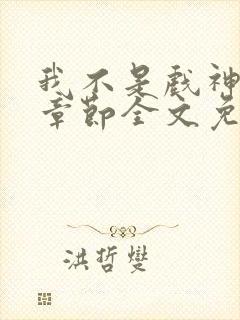 我不是戏神
章节全文免
洪哲燮